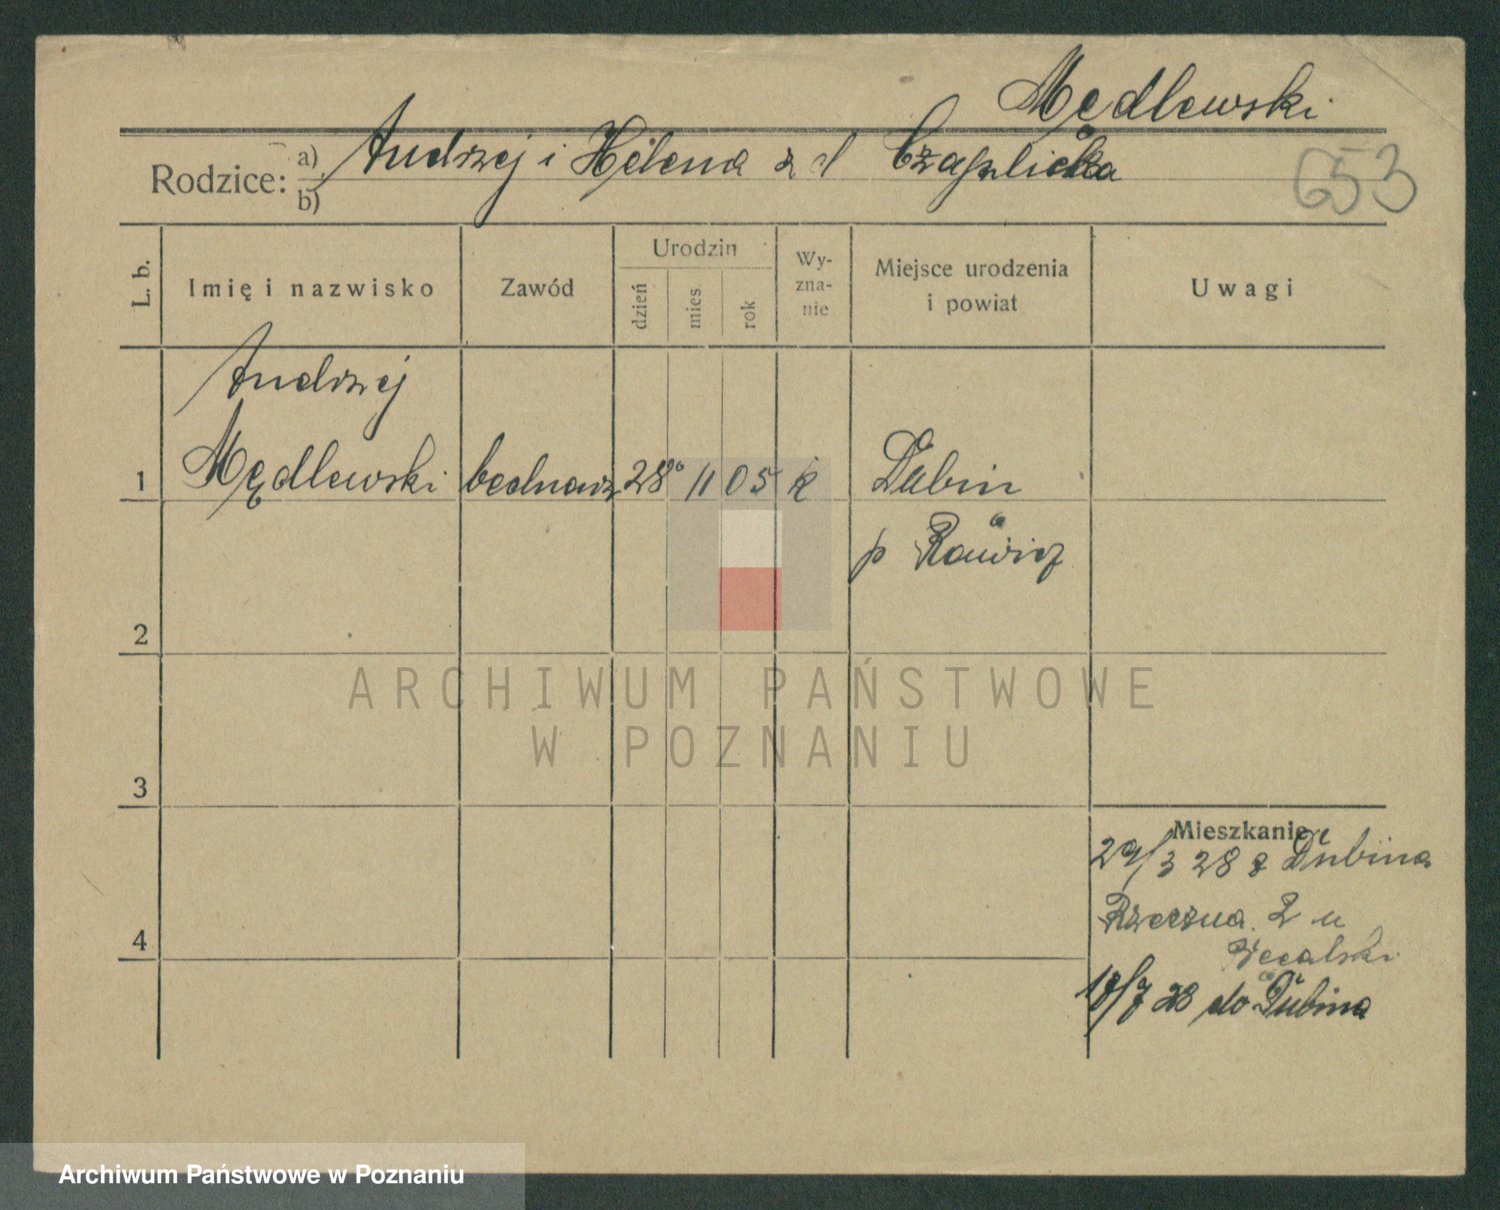 Mędlewski
Rodzice: a) Andrzej i Helena z d Czaplicka
b)
653
L. b.
Imię i nazwisko
Zawód
Urodzin
dzień
mies.
rok
Wy-
zna-
nie
Miejsce urodzenia
i powiat
Uwagi
Andrzej
1 Mędlewski bednarz 28 11 05 k Dubin
p Rawicz
2
3
4
Mieszkanie
29/3 28 z Dubina
Rzeczna 2 u
18/7 28 do Dubina
ARCHIWUM PAŃSTWOWE
W POZNANIU
Archiwum Państwowe w Poznaniu